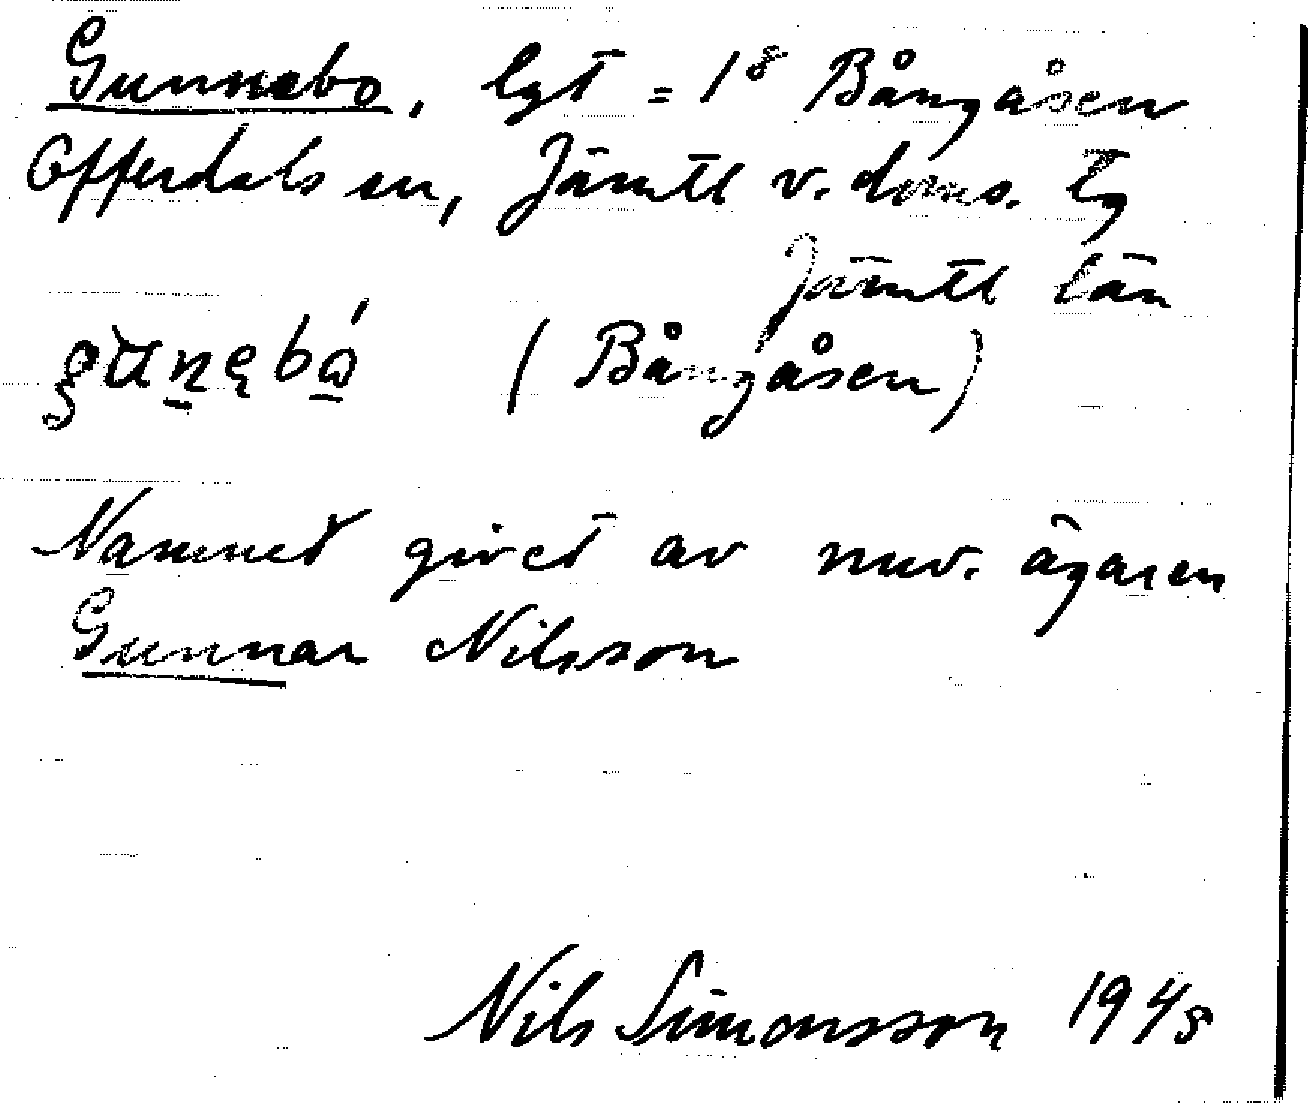 Gunnebo, lgt = 1⁸ Bångåsen
Offerdals sn, Jämtl v. doms. lg
Jämtl län
(Bångåsen)
Namnet givet av nuv. ägaren
Gunnar Nilsson
Nils Simonsson 1948